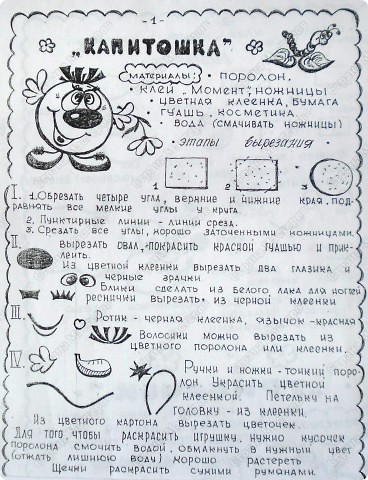 -1-
„КАПИТОШКА"
МАТЕРИАЛЫ:
• ПОРОЛОН,
• КЛЕЙ „МОМЕНТ", НОЖНИЦЫ
• ЦВЕТНАЯ КЛЕЕНКА, БУМАГА
ГУАШЬ, КОСМЕТИКА.
• ВОДА (СМАЧИВАТЬ НОЖНИЦЫ)
• этапы вырезания •
1 2 3
I. 1. Обрезать четыре угла, верхние и нижние края, под-
равнять все мелкие углы у круга.
2. Пунктирные линии - линии среза.
3. Срезать все углы, хорошо заточенными ножницами.
II. Вырезать овал, покрасить красной гуашью и прик-
леить.
Из цветной клеенки вырезать два глазика и
черные зрачки.
Блики сделать из белого лака для ногтей
реснички вырезать из черной клеенки
III. Ротик - черная клеенка, язычок - красная
Волосики можно вырезать из
цветного поролона или клеенки.
IV. Ручки и ножки - тонкий поро-
лон. Украсить цветной
клеенкой. Петельку на
головку - из клеенки.
Из цветного картона вырезать цветочек.
Для того, чтобы раскрасить игрушку, нужно кусочек
поролона смочить водой, обмакнуть в нужный цвет
(отжать лишнюю воду) хорошо растереть
Щечки раскрасить сухими румянами.